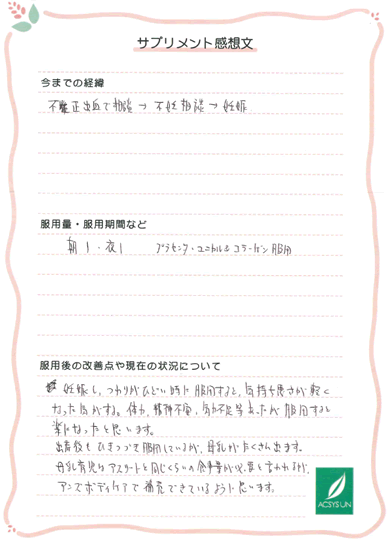 サプリメント感想文
今までの経緯
不正出血で相談→不妊相談→妊娠
服用量・服用期間など
朝1・夜1 プラセンタ・ユニトル& コラーゲン服用
服用後の改善点や現在の状況について
妊娠し、つわりがひどい時に服用すると、気持ち悪さが軽く
なった気がする。体力、精神不安、気力不足等あったが服用すると
楽になったと思います。
出産後もひきつづき服用しているが、母乳がたくさん出ます。
母乳育児はアスリートと同じくらいの食事量が必要と言われるが、
アンズボディケアで補充できているように思います。
ACSYS UN